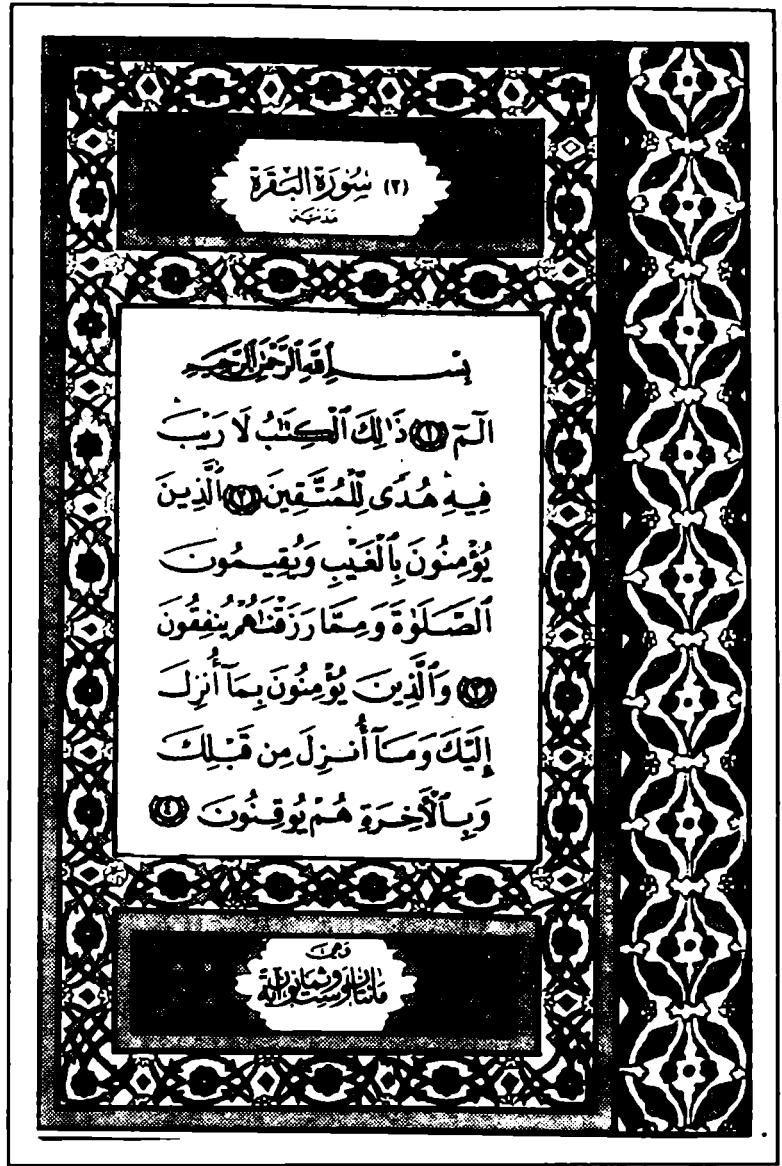 (٢) سُورَةُ الْبَقَرَةِ
مَدَنِيَّة
بِسْمِ ٱللَّهِ ٱلرَّحْمَٰنِ ٱلرَّحِيمِ
الٓمٓ ١ ذَٰلِكَ ٱلْكِتَٰبُ لَا رَيْبَ
فِيهِ هُدًى لِّلْمُتَّقِينَ ٢ ٱلَّذِينَ
يُؤْمِنُونَ بِٱلْغَيْبِ وَيُقِيمُونَ
ٱلصَّلَوٰةَ وَمِمَّا رَزَقْنَاهُمْ يُنفِقُونَ
٣ وَٱلَّذِينَ يُؤْمِنُونَ بِمَآ أُنزِلَ
إِلَيْكَ وَمَآ أُنزِلَ مِن قَبْلِكَ
وَبِٱلْأَخِرَةِ هُمْ يُوقِنُونَ ٤
وهى
مائتان وست وثمانون آية